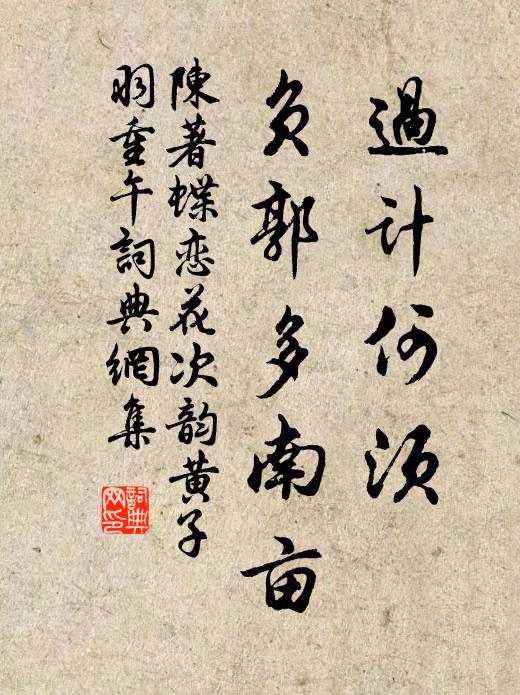 過计何须
负郭多南亩
陳著蝶恋花次韵黄子
羽重午詞典網集
詞典网印